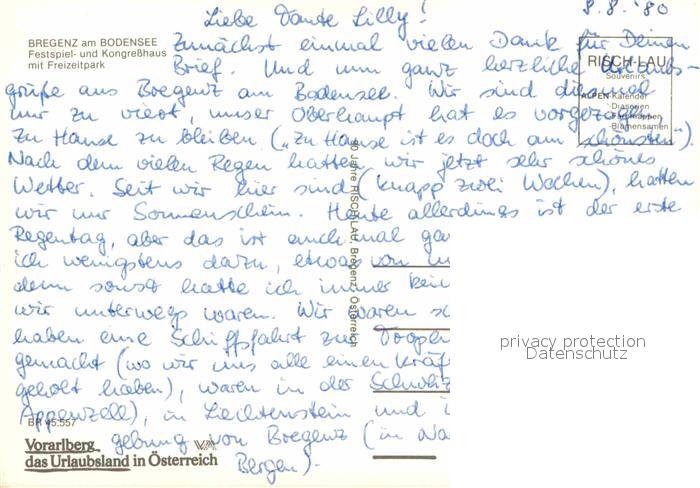 8.8.'80
Liebe Tante Lilly!
BREGENZ am BODENSEE
Festspiel- und Kongreßhaus
mit Freizeitpark
Zunächst einmal vielen Dank für Deinen
Brief. Und nun ganz herzliche Urlaubs-
grüße aus Bregenz am Bodensee. Wir sind diesmal
nur zu viert, unser Oberhaupt hat es vorgezogen
zu Hause zu bleiben („Zu Hause ist es doch am schönsten").
Nach dem vielen Regen hatten wir jetzt sehr schönes
Wetter. Seit wir hier sind (knapp zwei Wochen), hatten
wir nur Sonnenschein. Heute allerdings ist der erste
Regentag, aber das ist auch mal
ich wenigstens dazu, etwas von
denn sonst hatte ich immer
wir unterwegs waren. Wir waren
haben eine Schiffsfahrt zur
gemacht (wo wir uns alle einen
geholt haben), waren in der Schweiz
Appenzell), in Liechtenstein und
gebung von Bregenz (in
Bergen).
RISCH-LAU
Souvenirs
ALPEN-Kalender
Diaserien
Blumensamen
90 Jahre RISCH-LAU, Bregenz, Österreich
BR 45.557
Vorarlberg
das Urlaubsland in Österreich
privacy protection
Datenschutz